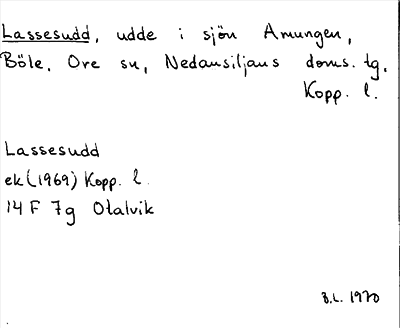 Lassesudd, udde i sjön Amungen,
Böle, Ore sn, Nedansiljans doms. tg,
Kopp. l.
Lassesudd
ek (1969) Kopp. l.
14 F 7g Otalvik
B.L. 1970